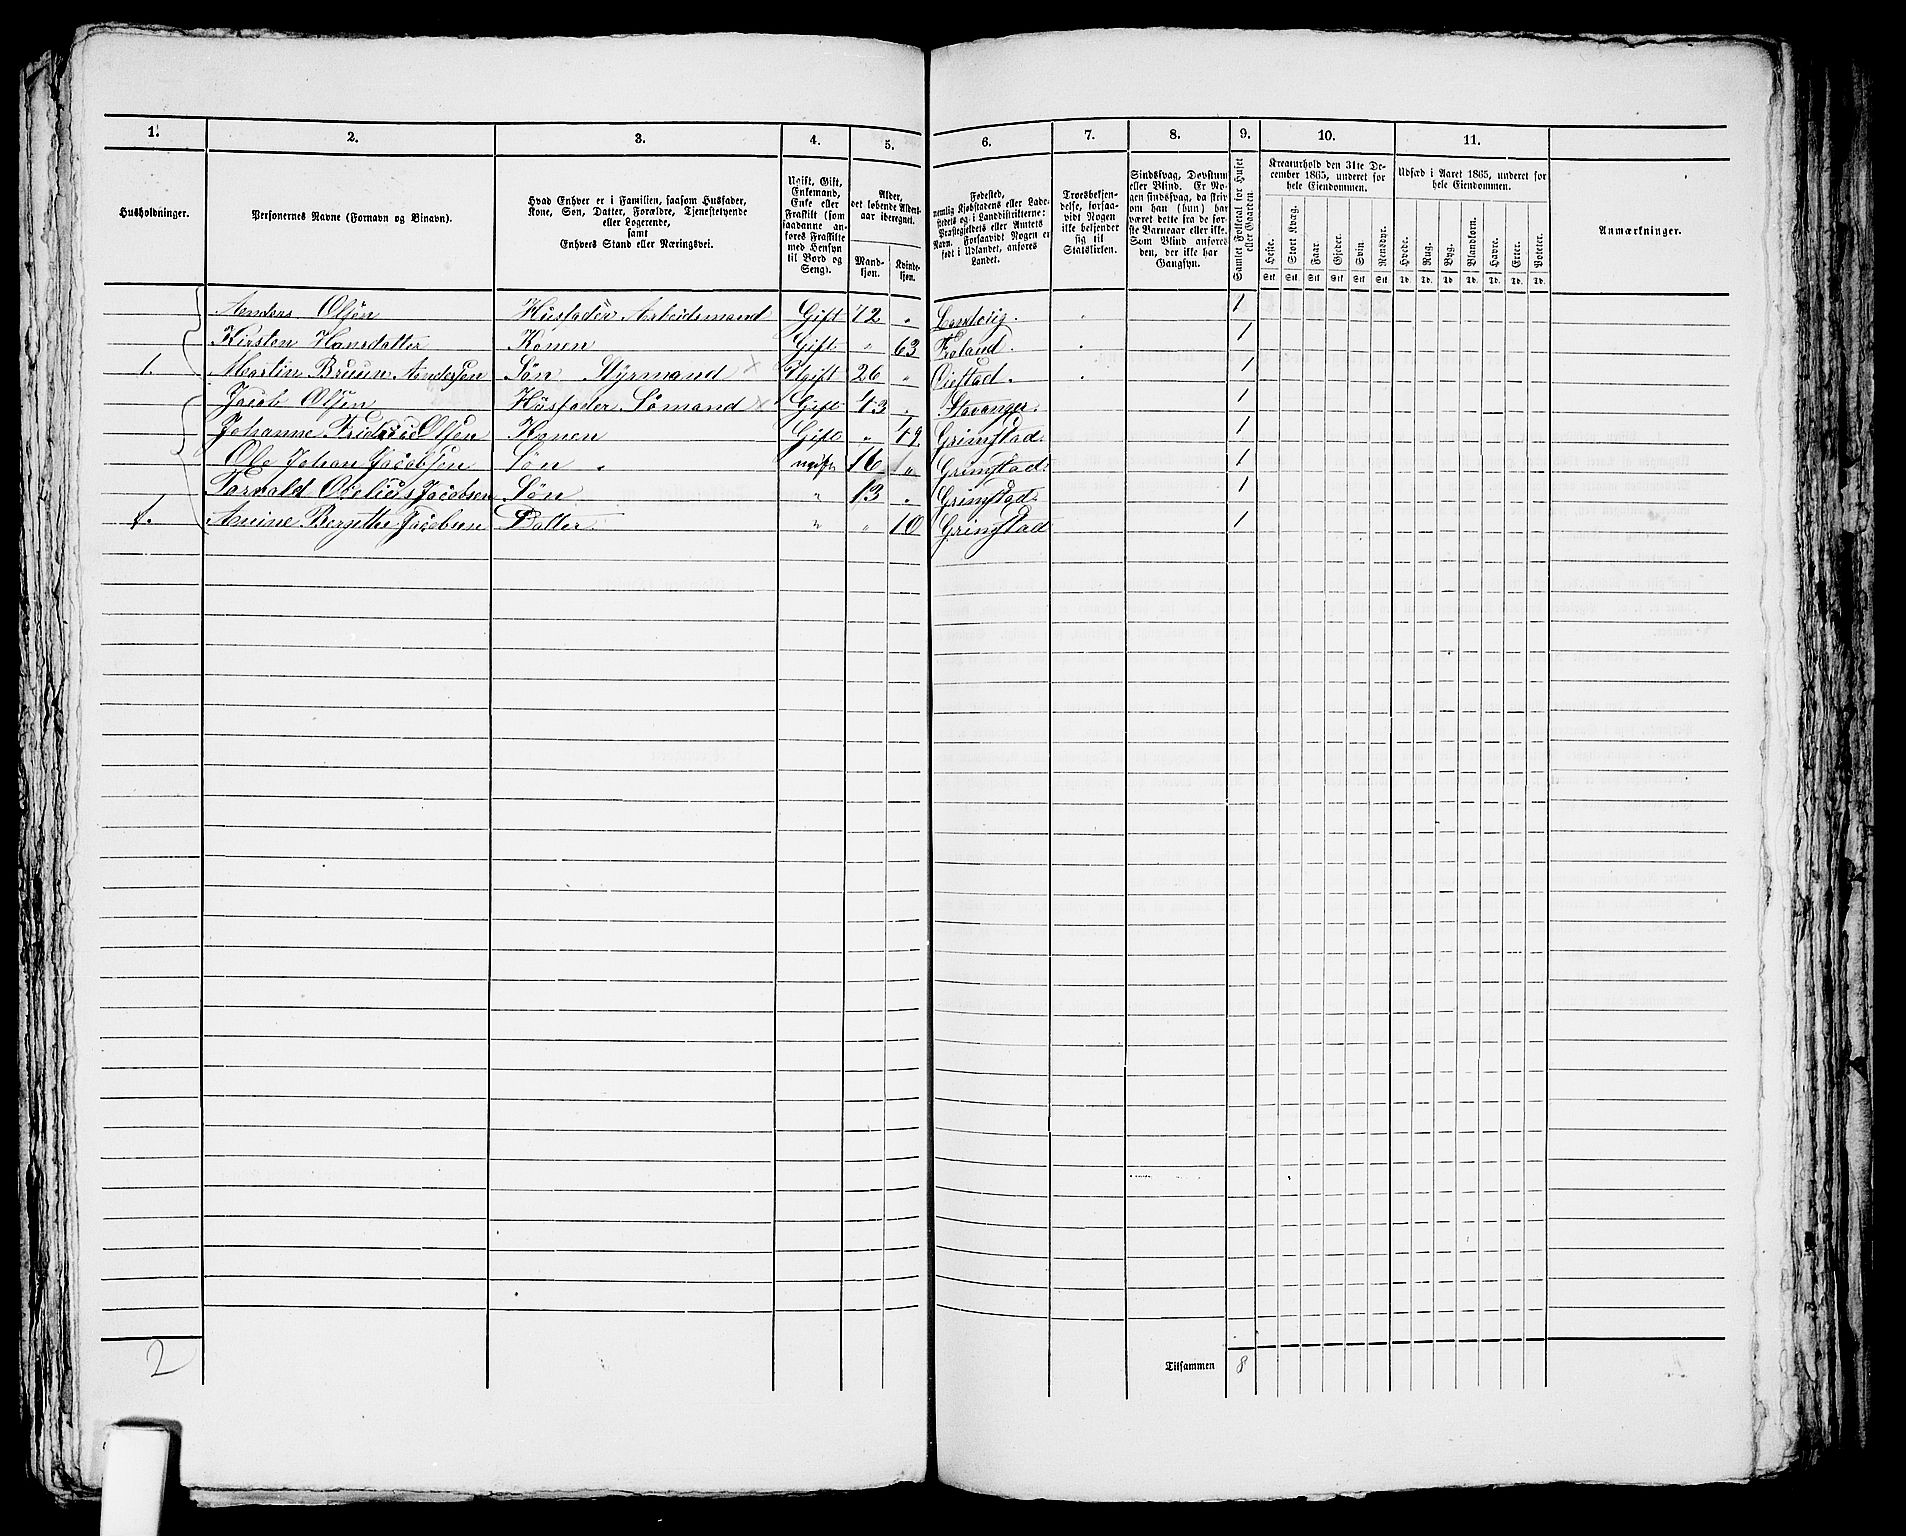 1. 2. 3. 4. 5. 6. 7. 8. 9. 10. 11.
Husholdninger.
Personernes Navne (Fornavn og Binavn).
Hvad Enhver er i Familien, saasom Husfader,
Kone, Søn, Datter, Forældre, Tjenestetyende
eller Logerende,
samt
Enhvers Stand eller Næringsvei.
Ugift, Gift,
Enkemand,
Enke eller
Fraskilt (som
saadanne an-
føres Fraskilte
med Hensyn
til Bord og
Seng).
Alder,
det løbende Alders-
aar iberegnet.
Mand-
kjøn.
Kvinde-
kjøn.
Fødested,
nemlig Kjøbstadens eller Lade-
stedets og i Landdistrikterne:
Præstegjeldets eller Amtets
Navn. Forsaavidt Nogen er
født i Udlandet, anføres
Landet.
Troesbekjen-
delse, forsaa-
vidt Nogen
ikke bekjender
sig til
Statskirken.
Sindssvag, Døvstum
eller Blind. Er No-
gen sindssvag, da skriv
om han (hun) har
været dette fra de før-
ste Barneaar eller ikke.
Som Blind anføres
den, der ikke har
Gangsyn.
Samlet Folketal for Huset
eller Gaarden.
Kreaturhold den 31te De-
cember 1865, underet for
hele Eiendommen.
Heste. Stort Kvæg. Faar. Gjeder. Svin. Rensdyr.
Stk Stk Stk Stk Stk Stk
Udsæd i Aaret 1865, underet for
hele Eiendommen.
Hvede. Rug. Byg. Blandkorn. Havre. Erter. Poteter.
Td. Td. Td. Td. Td. Td. Td.
Anmærkninger.
Anders Olsen Husfader Arbeidsmand Gift 72 „ Landvig. 1
Kirsten Hansdatter Konen Gift „ 63 Froland. 1
1. Martin Bruun Andersen Søn Styrmand x Ugift 26 „ Øiestad. 1
Jacob Olsen Husfader Sømand x Gift 43 „ Stavanger. 1
Johanne Olsen Konen Gift „ 49 Grimstad. 1
Ole Johan Jacobsen Søn ugift 16 „ Grimstad. 1
Tarvald Jacobsen Søn „ 13 „ Grimstad. 1
1. Jacobsen Datter „ „ 10 Grimstad 1
2 Tilsammen 8